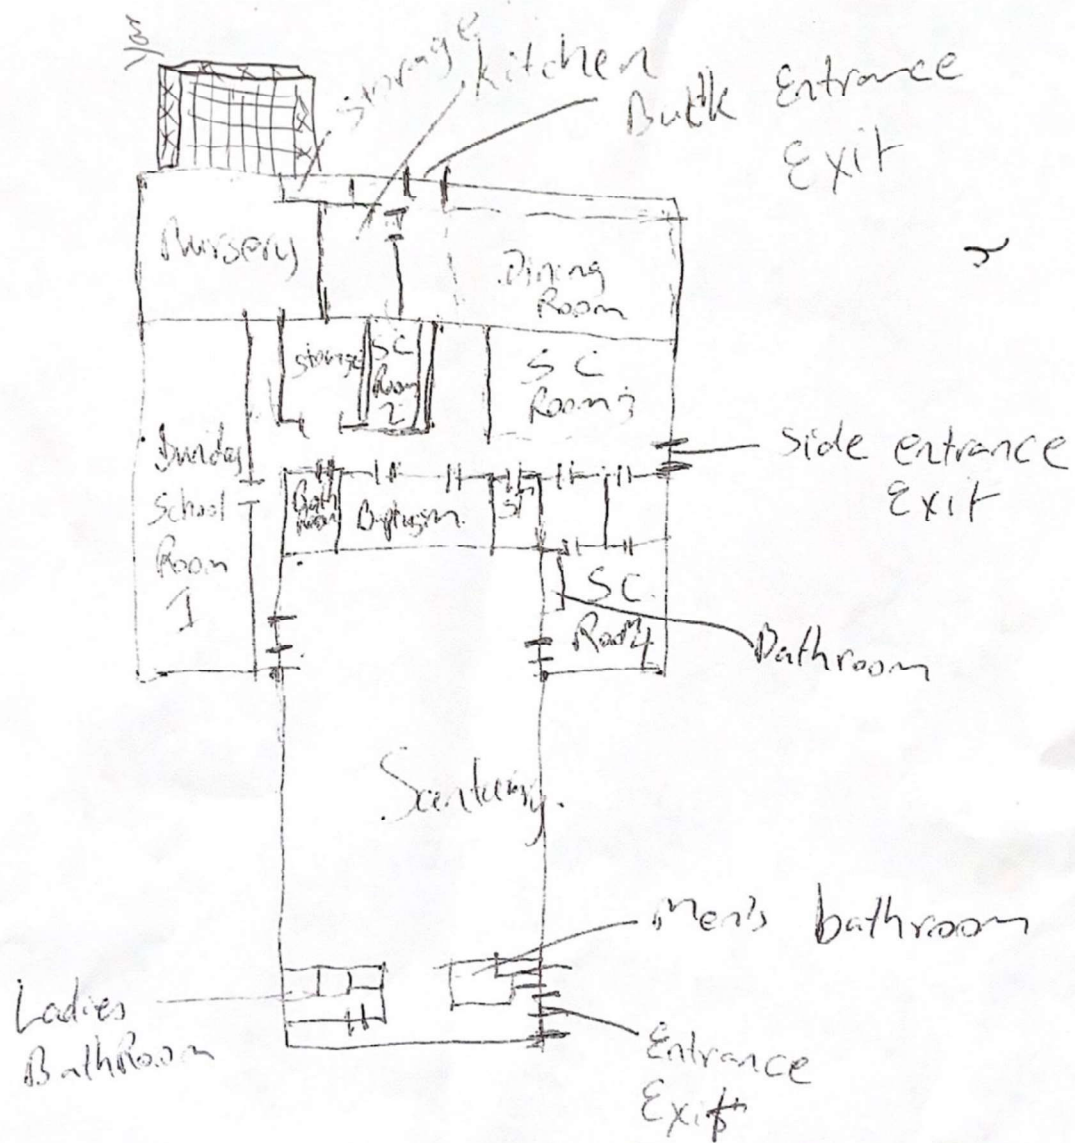 Yar
Storage
Kitchen
Back Entrance
Exit
Nursery
Dining
Room
Storage
SC
Room
2
SC
Room 3
Side entrance
Exit
Sunday
School
Room
1
Bath
room
Baptism
St
SC
Room 4
Bathroom
Santuary
Men's bathroom
Ladies
BathRoom
Entrance
Exit